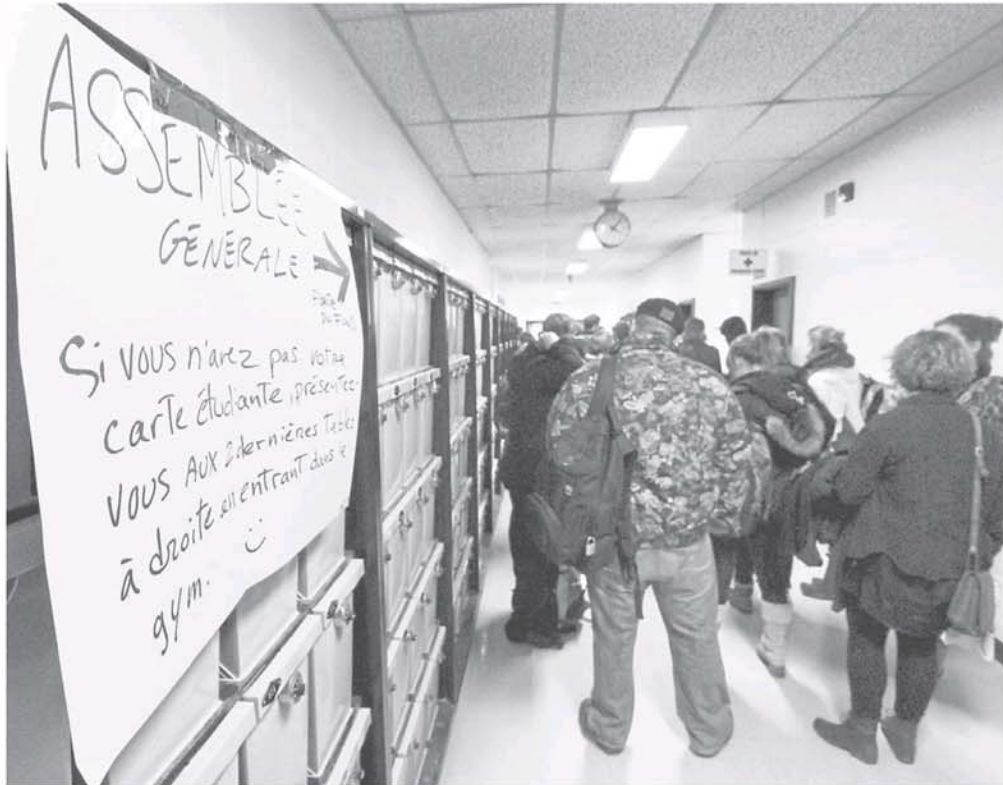 ASSEMBLÉE
GÉNÉRALE →
Si VOUS n'avez pas votre
carte étudiante, présentez-
VOUS AUX 2 dernières tables
à droite en entrant dans le
gym. :)